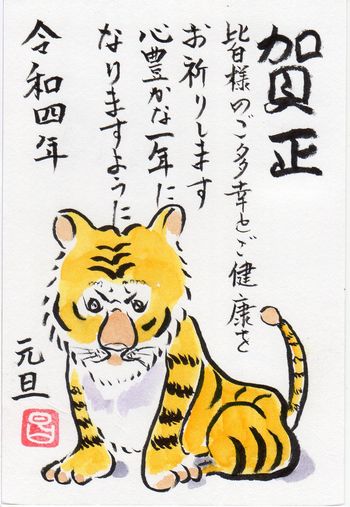 賀正
皆様のご多幸とご健康を
お祈りします
心豊かな一年に
なりますように
令和四年
元旦